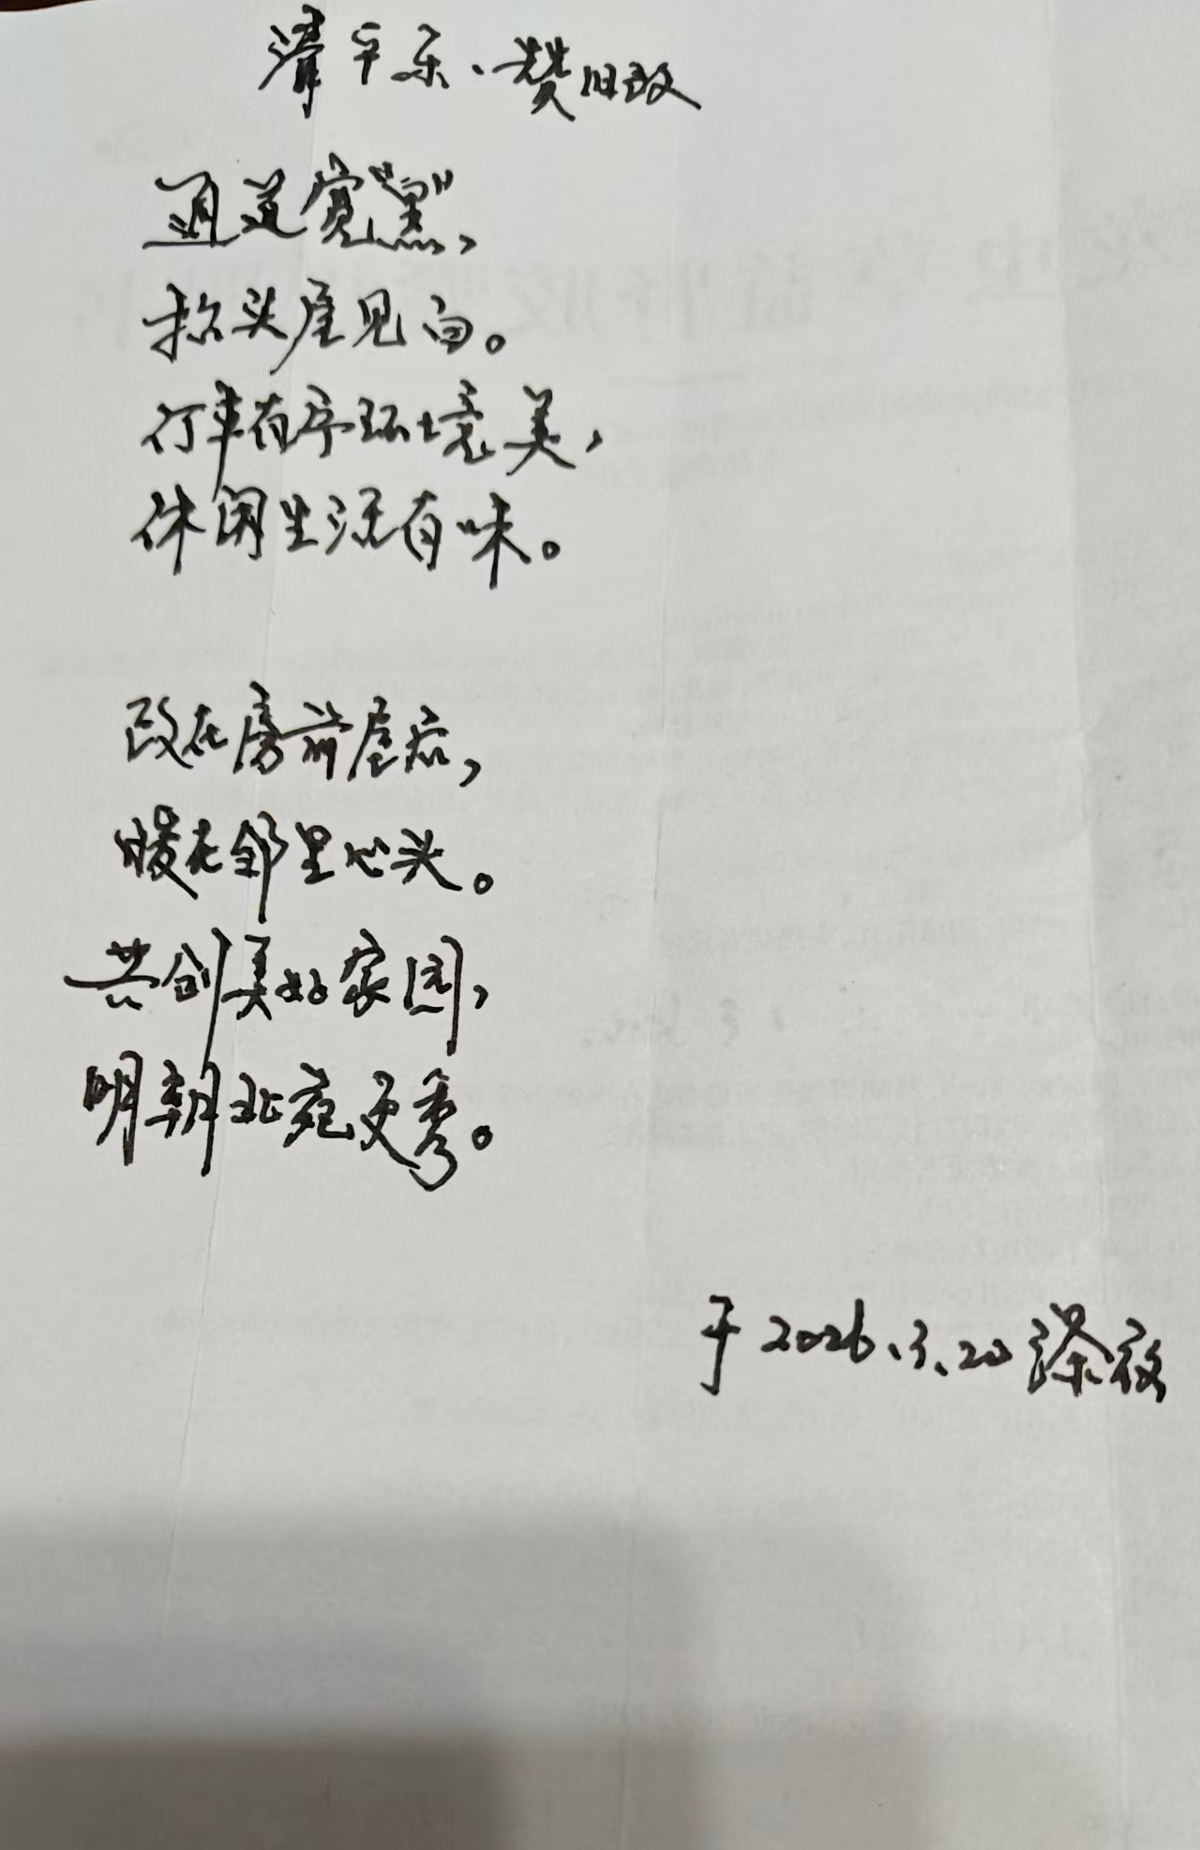 清平乐·赞旧改
通道宽“黑”,
抬头屋见白。
行车有序环境美,
休闲生活有味。
改在房前屋后,
暖在邻里心头。
共创美好家园,
明朝北苑更秀。
于2026.3.20深夜